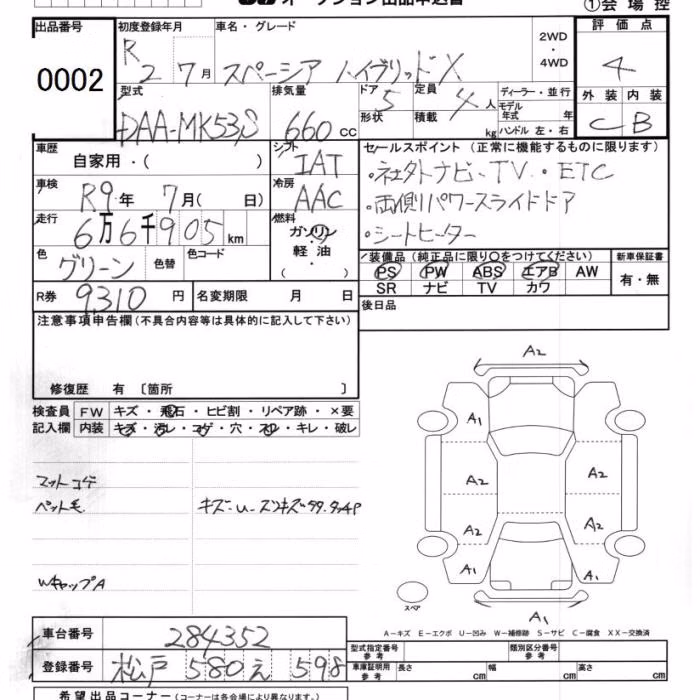 オークション出品申込書
①会場控
出品番号 0002
初度登録年月 R2 7月
車名・グレード スペーシア ハイブリッドX
2WD・4WD
評価点 4
型式 DAA-MK53S
排気量 660 cc
ドア 5
形状
定員 4人
積載 kg
ディーラー・並行
モデル年式 年
ハンドル 左・右
外装 内装
C B
車歴 自家用・( )
シフト IAT
セールスポイント (正常に機能するものに限ります)
・社外ナビ、TV・ETC
・両側パワースライドドア
・シートヒーター
車検 R9年 7月( 日)
冷房 AAC
走行 6万6千905km
燃料 ガソリン・軽油・
色 グリーン 色替 色コード
装備品 (純正品に限り○をつけてください) 新車保証書
PS PW ABS エアB AW
SR ナビ TV カワ
有・無
R券 9,310円 名変期限 月 日
後日品
注意事項申告欄(不具合内容等は具体的に記入して下さい)
修復歴 有 〔箇所 〕
検査員記入欄
FW キズ・飛石・ヒビ割・リペア跡・×要
内装 キズ・汚レ・コゲ・穴・スレ・キレ・破レ
マットコゲ
ペット毛
WキャップA
A2
A1
A2 A2
A2 A2
A1 A1
A1
スペア
A-キズ E-エクボ U-凹み W-補修跡 S-サビ C-腐食 XX-交換済
車台番号 284352
登録番号 松戸 580 え 598
型式指定番号 参考
類別区分番号 参考
車庫証明用 参考 長さ cm 幅 cm 高さ cm
希望出品コーナー (コーナーは各会場により異なります。)